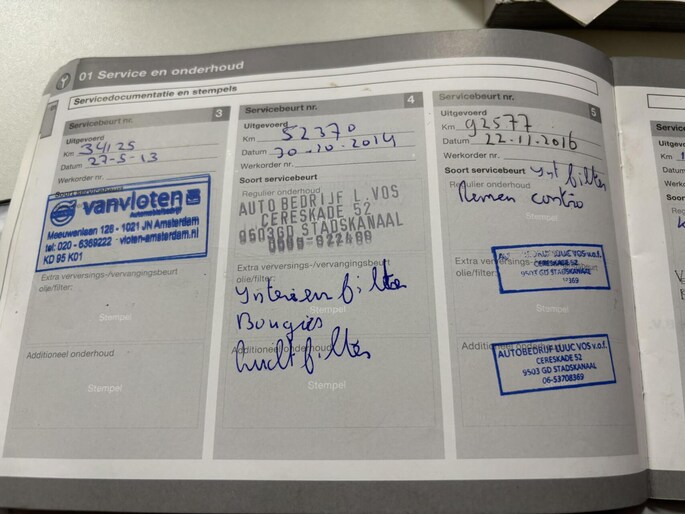 01 Service en onderhoud
Servicedocumentatie en stempels
Servicebeurt nr. 3
Uitgevoerd
Km 34125
Datum 27-5-13
Werkorder nr.
Soort servicebeurt
vanvloten
Automobielbedrijf
Meeuwenlaan 128 - 1021 JN Amsterdam
tel: 020 - 6369222 vloten-amsterdam.nl
KD 95 KD1
Extra verversings-/vervangingsbeurt
olie/filter:
Stempel
Additioneel onderhoud
Stempel
Servicebeurt nr. 4
Uitgevoerd
Km 52370
Datum 30-10-2014
Werkorder nr.
Soort servicebeurt
Regulier onderhoud
AUTOBEDRIJF L. VOS
CERESKADE 52
9503GD STADSKANAAL
Extra verversings-/vervangingsbeurt
olie/filter:
Interieur filter
Stempel
Bougies
Additioneel onderhoud
Lucht filter
Stempel
Servicebeurt nr. 5
Uitgevoerd
Km 92577
Datum 22-11-2016
Werkorder nr.
Soort servicebeurt Int filter
Regulier onderhoud
Riemen contro
Stempel
Extra verversings-
olie/filter:
LUUC VOS v.o.f.
CERESKADE 52
9503 GD STADSKANAAL
Additioneel onderhoud
AUTOBEDRIJF LUUC VOS v.o.f.
CERESKADE 52
9503 GD STADSKANAAL
06-53708369
Stempel